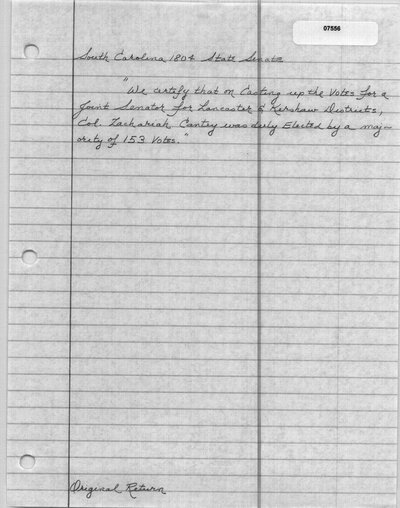 07556
South Carolina 1804 State Senate
"We certify that on Casting up the Votes for a
Joint Senator for Lancaster & Kershaw Districts,
Col. Zachariah Cantey was duly Elected by a maj-
ority of 153 Votes."
Original Return